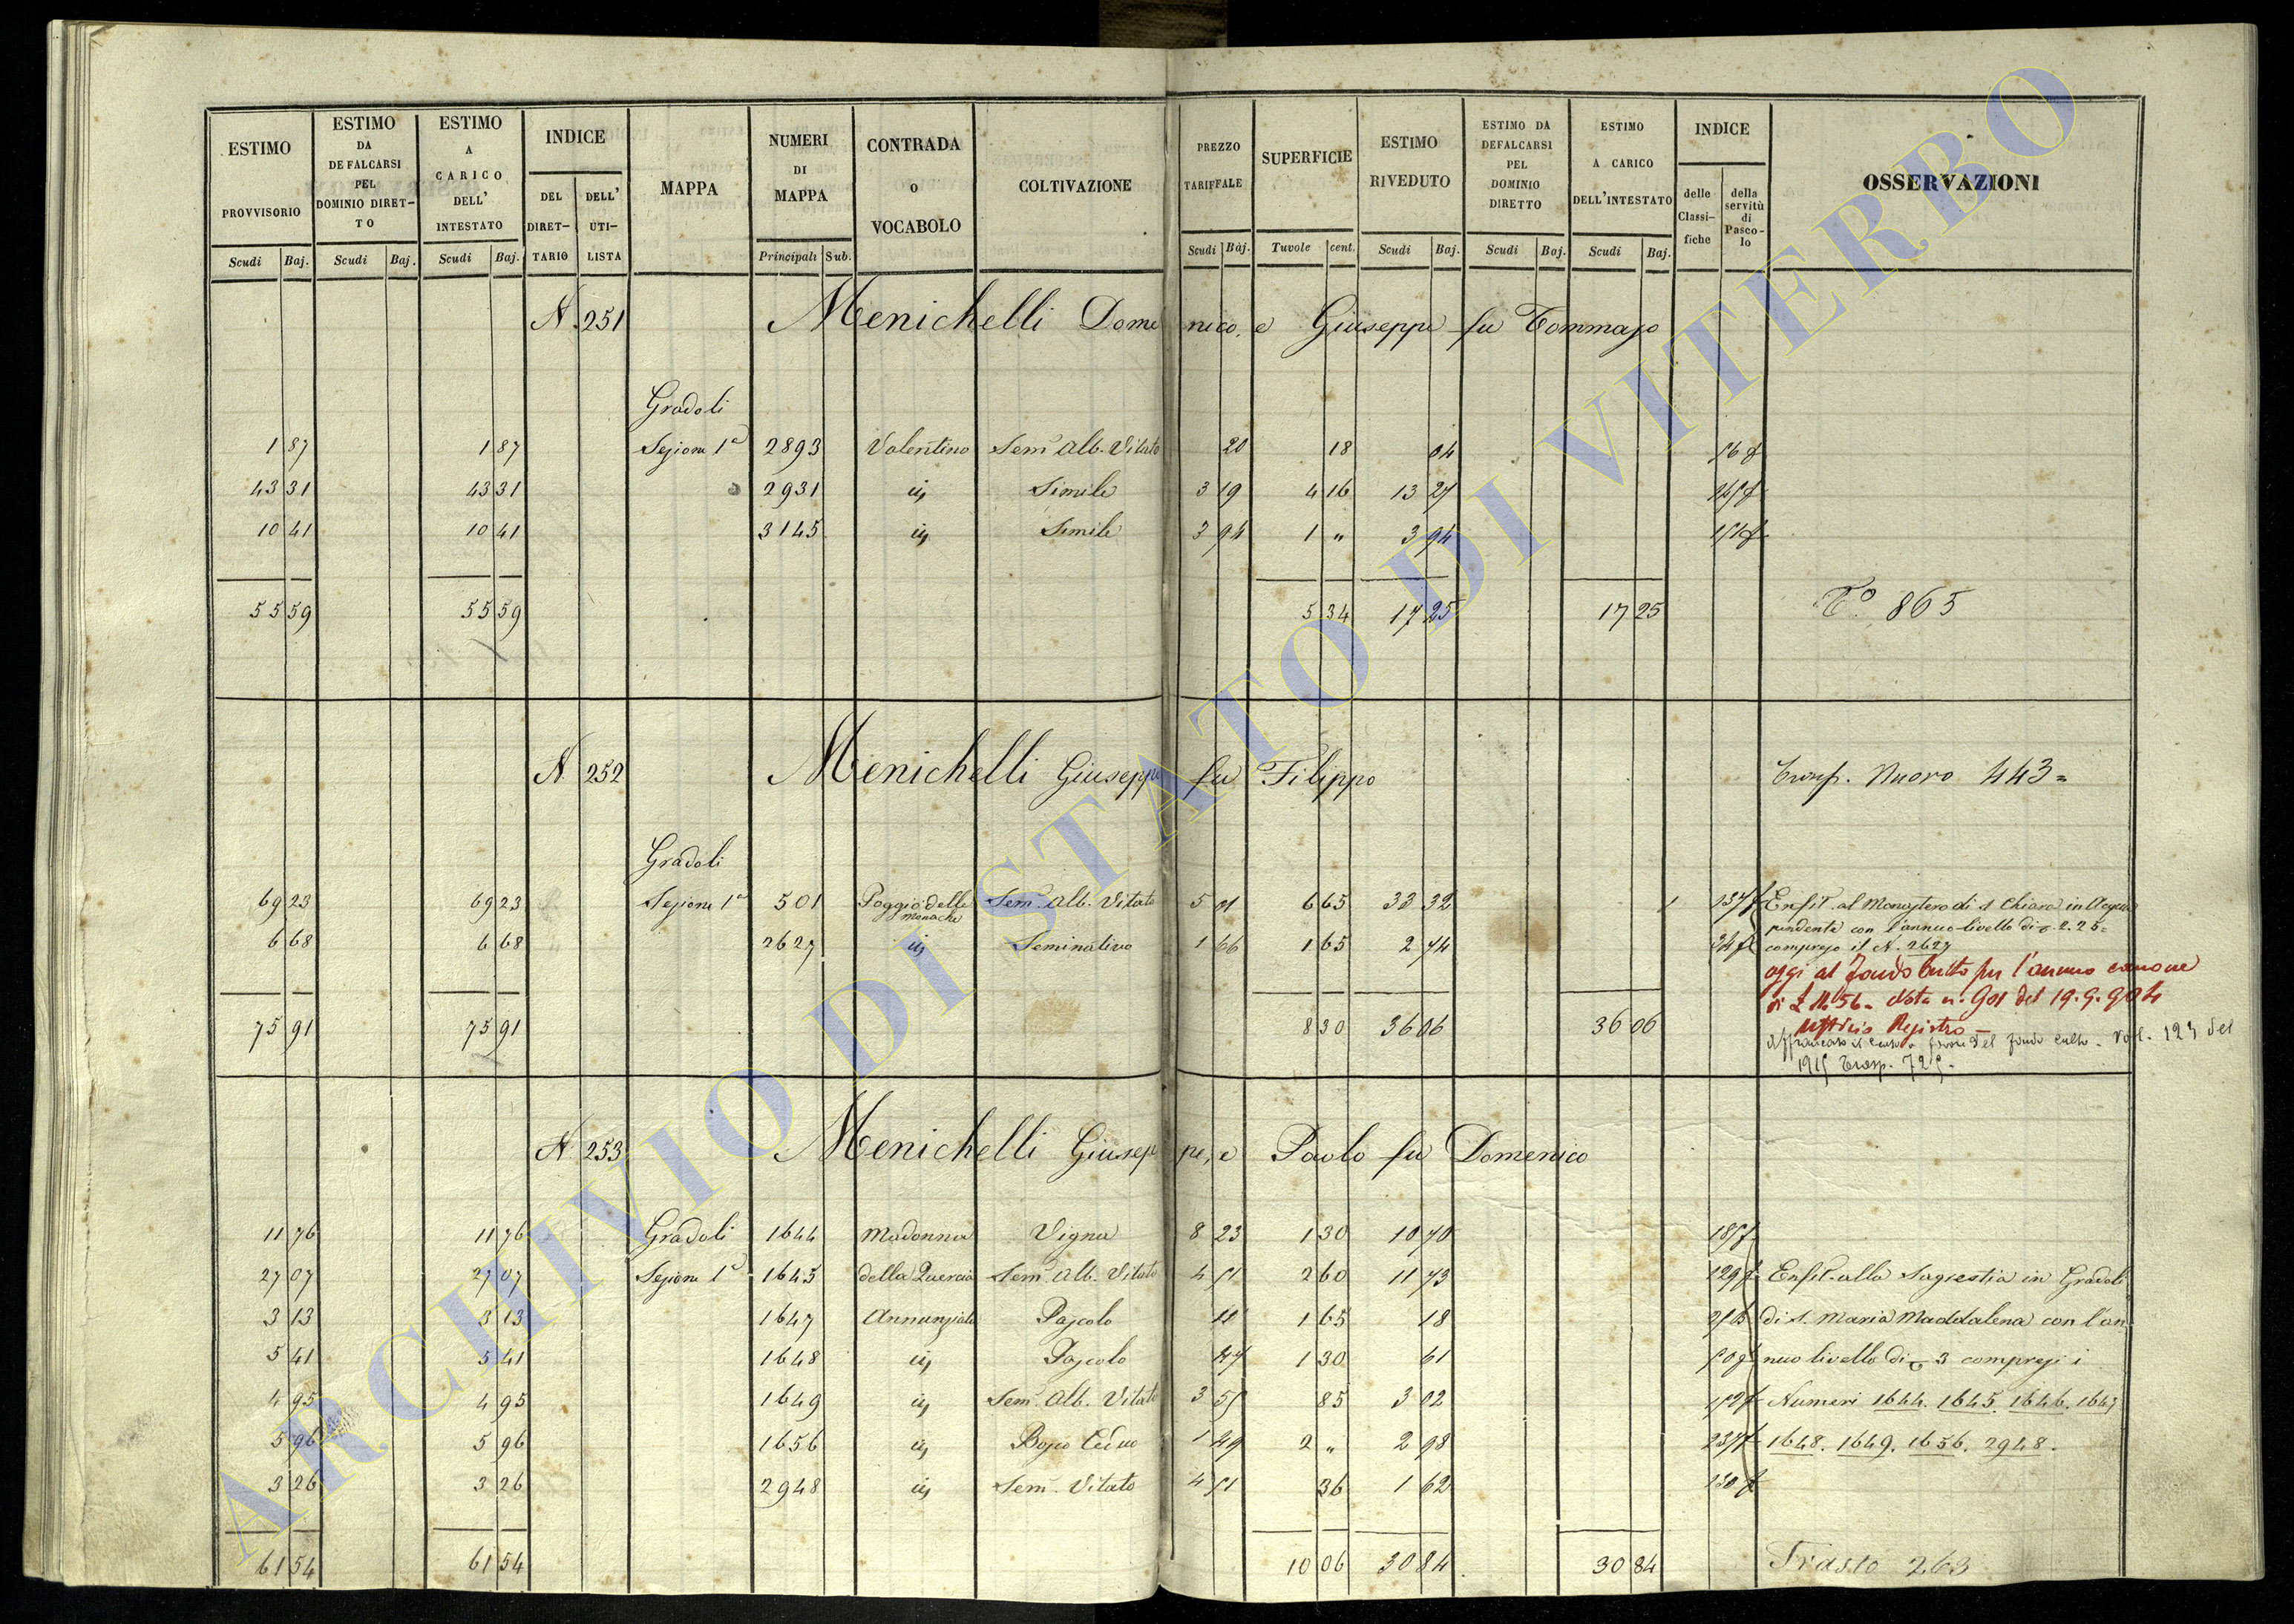 ESTIMO PROVVISORIO | ESTIMO DA DEFALCARSI PEL DOMINIO DIRET-TO | ESTIMO A CARICO DELL' INTESTATO | INDICE DEL DIRET-TARIO | DELL' UTI-LISTA | MAPPA | NUMERI DI MAPPA | CONTRADA o VOCABOLO | COLTIVAZIONE | PREZZO TARIFFALE | SUPERFICIE | ESTIMO RIVEDUTO | ESTIMO DA DEFALCARSI PEL DOMINIO DIRETTO | ESTIMO A CARICO DELL'INTESTATO | INDICE delle Classi-fiche | della servitù di Pasco-lo | OSSERVAZIONI
Scudi Baj. Scudi Baj. Scudi Baj. Principali Sub. Scudi Baj. Tavole cent. Scudi Baj. Scudi Baj. Scudi Baj.
N. 251 Menichelli Domenico, e Giuseppe fu Tommaso
Gradoli
1 87 1 87 Sezione 1a 2893 Valentino Sem. Alb. Vitato 20 18 04
43 31 43 31 2931 Simile 3 19 4 16 13 27
10 41 10 41 3145 Simile 3 94 1 " 3 94
55 59 55 59 5 34 17 25 17 25 To. 865
N. 252 Menichelli Giuseppe fu Filippo Trasp. Nuovo 443=
Gradoli
69 23 69 23 Sezione 1a 501 Poggio delle Monache Sem. Alb. Vitato 5 01 6 65 33 32 Enfit. al Monastero di S. Chiara in Acqua
pendente con l'annuo livello di 2.25=
6 68 6 68 2627 Seminativo 1 66 1 65 2 74 compreso il N. 2627
oggi al fondo Culto per l'annuo canone
di Nota n. 901 del 19.9.904
Ufficio Registro
75 91 75 91 8 30 36 06 36 06
Affrancato a favore del fondo culto. Vol. 123 del
1915 Trasp. 725.
N. 253 Menichelli Giuseppe, e Paolo fu Domenico
11 76 11 76 Gradoli 1644 Madonna Vigna 8 23 1 30 10 70
27 07 27 07 Sezione 1a 1645 della Quercia Sem. Alb. Vitato 4 51 2 60 11 73 Enfit. alla Sagrestia in Gradoli
3 13 3 13 1647 Annunziata Pascolo 11 1 65 18 di S. Maria Maddalena con l'an
5 41 5 41 1648 Pascolo 47 1 30 61 nuo livello di 3 compresi i
4 95 4 95 1649 Sem. Alb. Vitato 3 55 85 3 02 Numeri 1644. 1645. 1646. 1647
5 96 5 96 1656 Bosco Ceduo 1 49 2 " 2 98 1648. 1649. 1656. 2948.
3 26 3 26 2948 Sem. Vitato 4 51 36 1 62
61 54 61 54 10 06 30 84 30 84 Traslo 263
ARCHIVIO DI STATO DI VITERBO